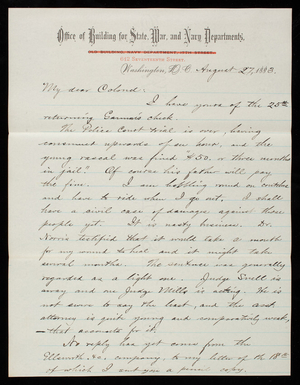 Office of Building for State, War, and Navy Departments,
Washington, D.C. August 27, 1883.
My dear Colonel:
I have yours of the 25th
returning Cannai's check.
The Police Court trial is over, having
consumed upwards of an hour, and the
young rascal was fined $50. or three months
in jail! Of course his father will pay
the fine. I am hobbling round on crutches
and have to ride when I go out. I shall
have a civil case of damages against those
people yet. It is nasty business. Dr.
Norris testified that it would take a month
for my wound to heal and it might take
several months. The sentence was generally
regarded as a light one. Judge Snell is
away and one Judge Mills is acting. He is
not sure to say the least, and the asst.
attorney is quite young and comparatively weak,
- that accounts for it.
No reply has yet come from the
Ellsworth, Me. company, to my letter of the 18th
of which I sent you a press copy.